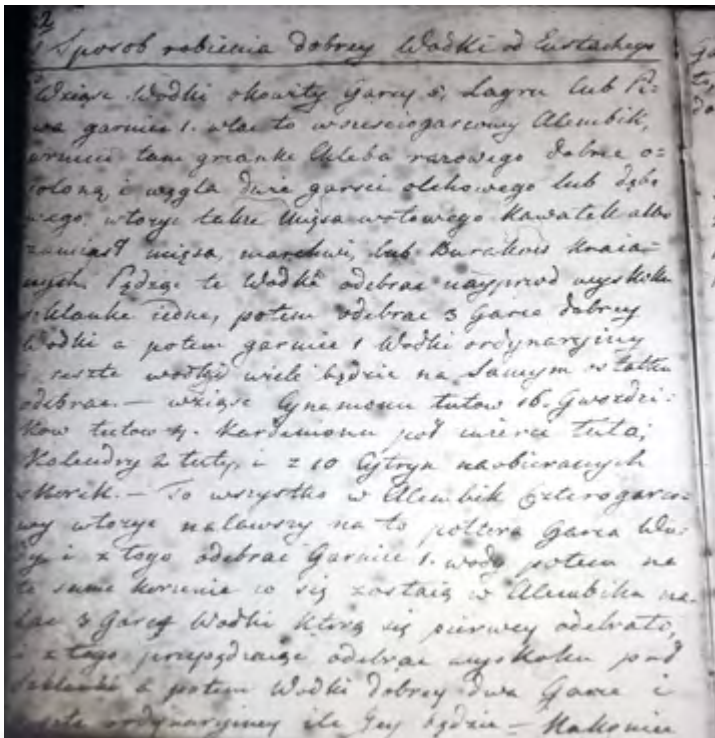 2
Sposob robienia dobrey Wodki od Eustachego
Wziąsc Wodki okowity Garcy 5, Lagru lub Pi=
wa garniec 1. wlac to w szesciogarcowy Alembik,
wrzucic tam grzanke Chleba razowego dobrze o=
soloną i węgla dwie garsci olchowego lub dębo
wego, włożyc także Mięsa wołowego kawałek albo
zamiast mięsa, marchwi, lub Burakow kraia=
nych. Pędząc te Wodkę odebrac nayprzod wyskoku
szklanke iedne, potem odebrac 3 Garce dobrey
Wodki a potem garniec 1 Wodki ordynaryiney
i reszte wodki wiele będzie na Samym ostatku
odebrac. — wziąsc Cynamonu łutow 16. Gwozdzi=
kow łutow 4. Kardamonu puł cwierci łuta,
Kolendry 2 łuty, i z 10 Cytryn naobieranych
skorek. — To wszystko w Alembik Czterogarco=
wy włożyc nalawszy na to połtora Garca Wo
dy i z tego odebrac Garniec 1. wody potem na
te same korzenie co się zostaią w Alembiku na=
lac 3 Garcy Wodki Którą się pierwey odebrało,
i z tego przepędzaiąc odebrac wyskoku puł
szklanki a potem Wodki dobrey dwa Garce i
reszte ordynaryiney ile Jey będzie — Nakoniec